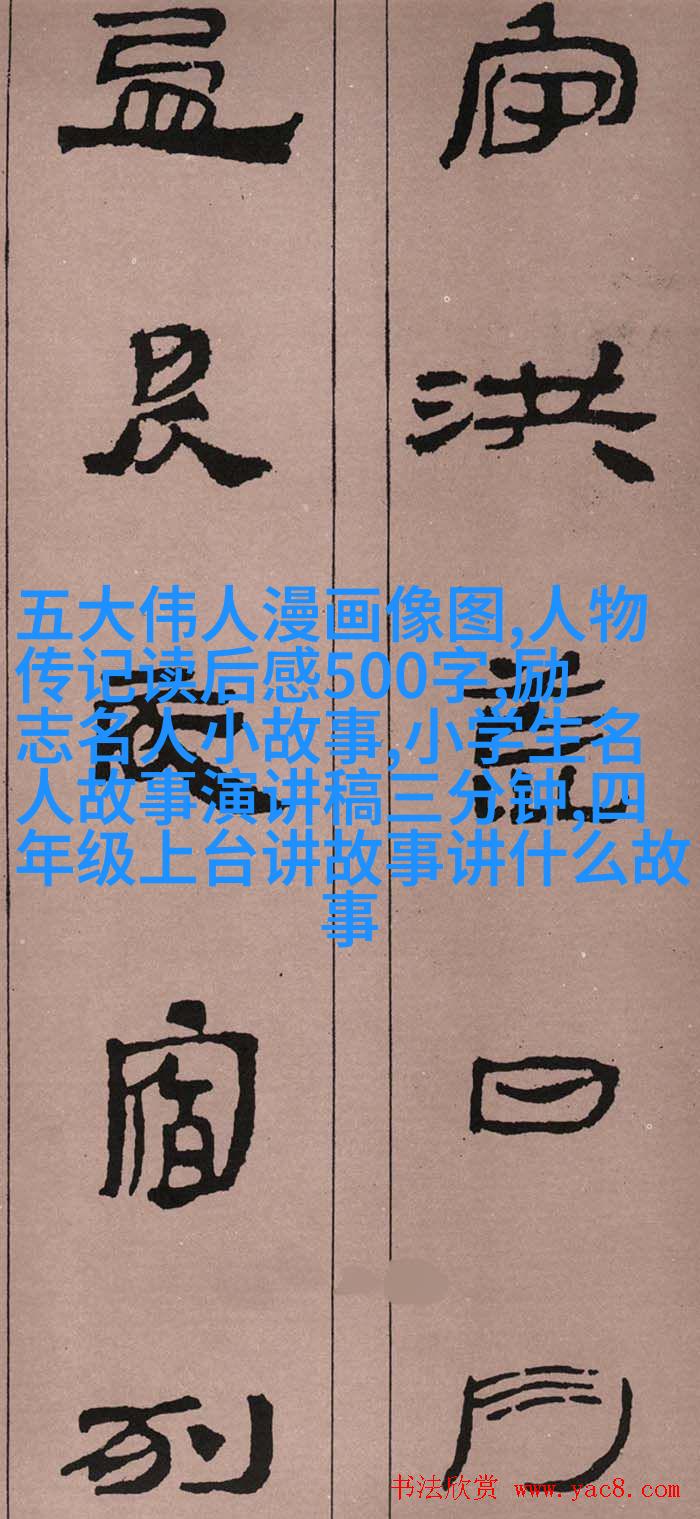 宙洪荒日月
盈昃辰宿列
五大伟人漫画像图,人物
传记读后感500字,励
志名人小故事,小学生名
人故事演讲稿三分钟,四
年级上台讲故事讲什么故
事
书法欣赏 www.yac8.com